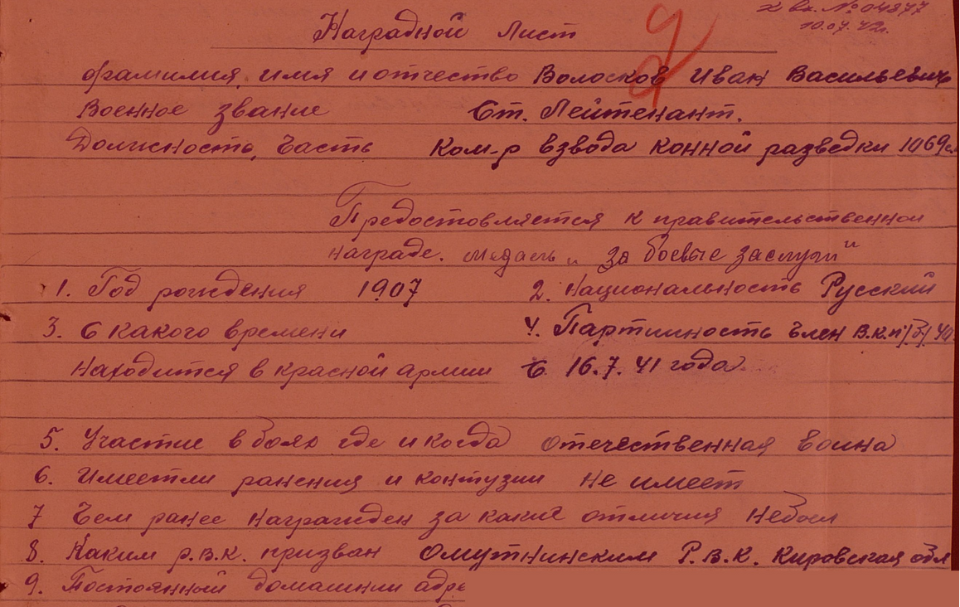 2 вх. № 04877
10.07.42г.
Наградной Лист
фамилия, имя и отчество Волосков Иван Васильевич
Военное звание Ст. Лейтенант.
Должность, часть Ком-р взвода конной разведки 1069
Предостовляется к правительственной
награде. медаль „За боевые заслуги"
1. Год рождения 1907 2. Национальность Русский
3. С какого времени 4. Партийность член В.К.П/б/
находится в красной армии с 16.7.41 года.
5. Участие в боях где и когда отечественная воина
6. Имеетли ранения и контузии не имеет
7 Чем ранее награжден за какие отличия небыл
8. Каким р.в.к. призван Омутнинским Р.В.К. Кировская обл
9. Постоянный домашнии адре